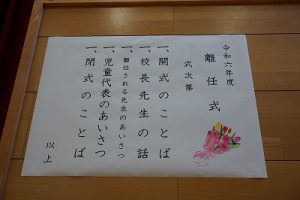 令和六年度
離任式
式次第
一、開式のことば
一、校長先生の話
一、離任される先生のあいさつ
一、児童代表のあいさつ
一、閉式のことば
以上